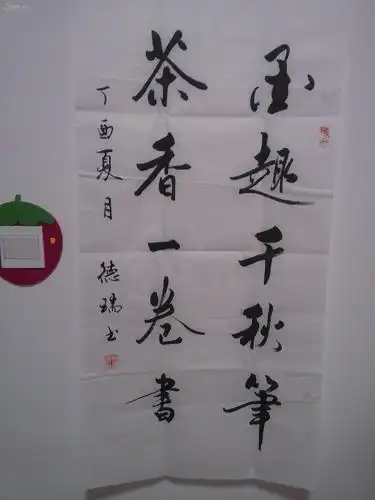 墨趣千秋筆
茶香一卷書
丁酉夏月 德瑞书